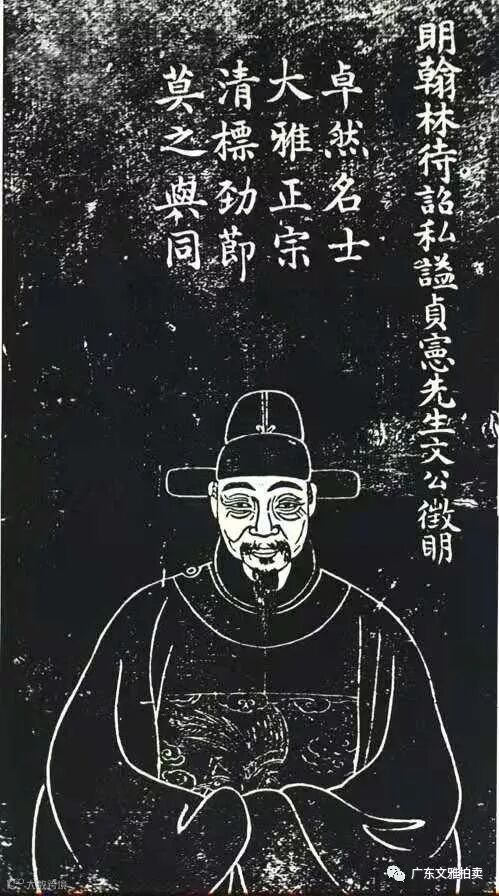 明翰林待詔私謚貞憲先生文公徵明
卓然名士
大雅正宗
清標勁節
莫之與同
广东文雅拍卖
大成跨境